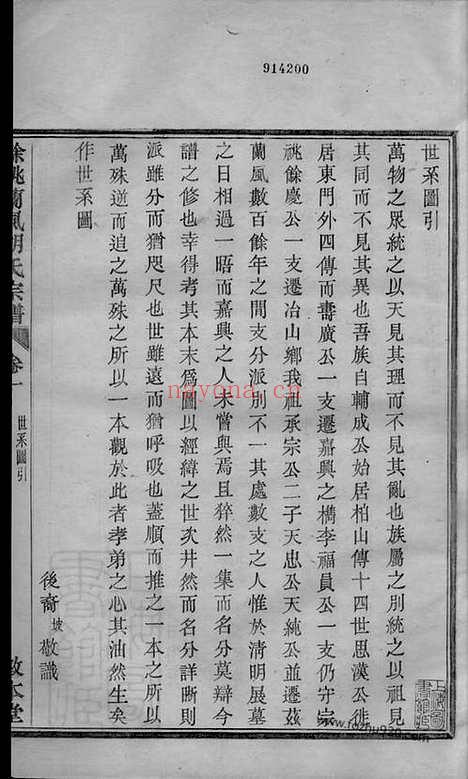 914200
世系圖引
萬物之眾統之以天見其理而不見其亂也族屬之別統之以祖見
其同而不見其異也吾族自輔成公始居柏山傳十四世思漢公徙
居東門外四傳而壽廣公一支遷嘉興之檇李福員公一支仍守宗
祧餘慶公一支遷冶山鄉我祖承宗公二子天忠公天純公並遷茲
蘭風數百餘年之間支分派別不一其處數支之人惟於清明展墓
之日相過一晤而嘉興之人未嘗與焉且猝然一集而名分莫辯今
譜之修也幸得考其本末爲圖以經緯之世次井然而名分詳晰則
派雖分而猶咫尺也世雖遠而猶呼吸也蓋順而推之一本之所以
萬殊逆而追之萬殊之所以一本觀於此者孝弟之心其油然生矣
作世系圖
後裔坡敬識
餘姚蘭風胡氏宗譜
卷一
世系圖引
敦本堂
nayona.cn